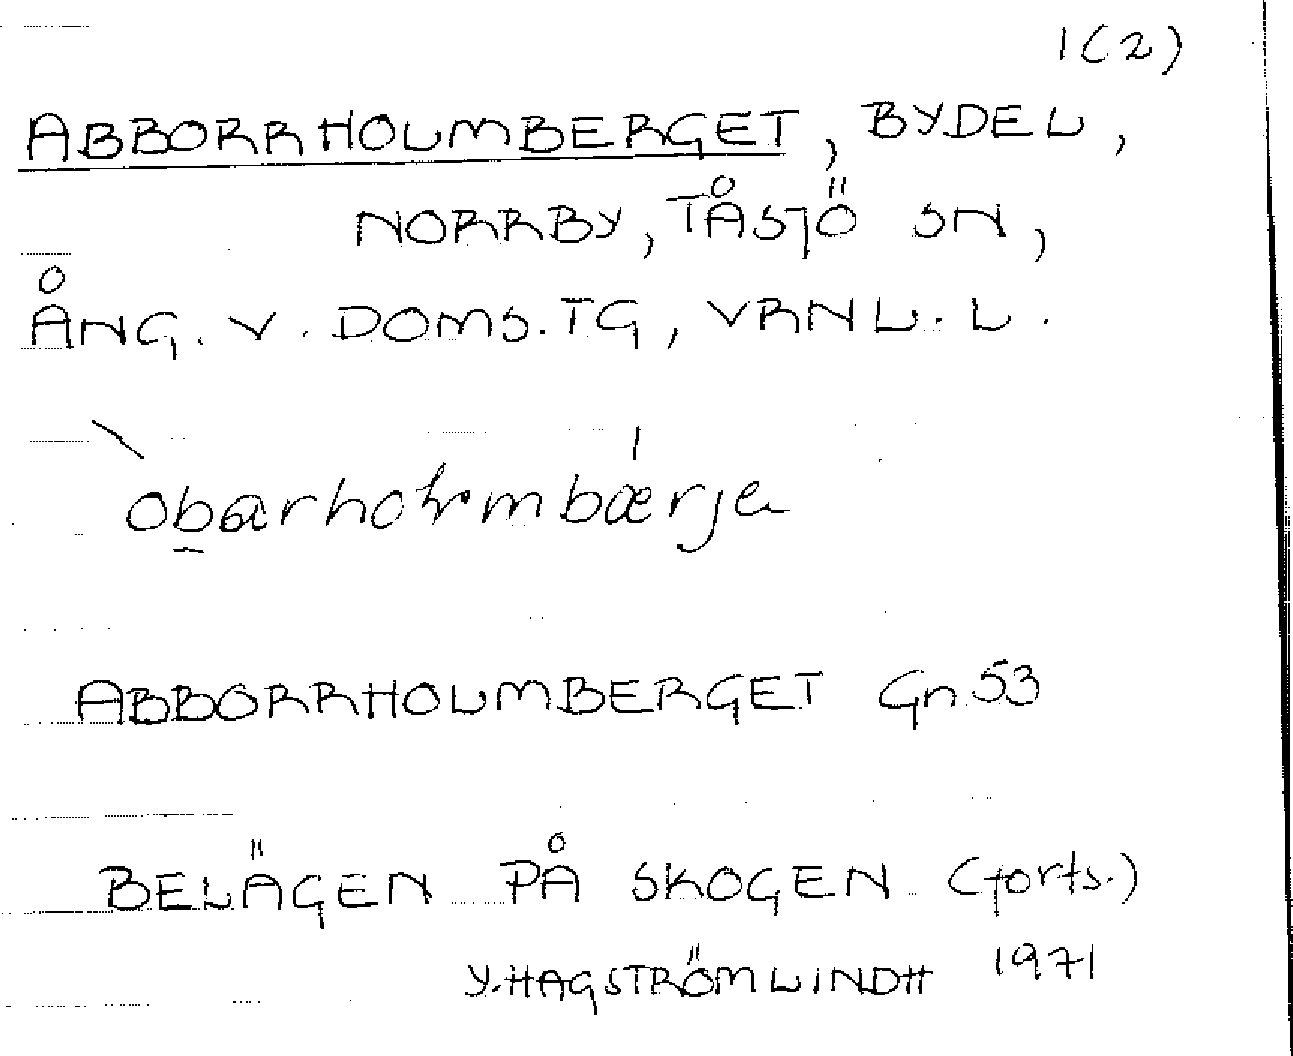 1(2)
ABBORRHOLMBERGET, BYDEL,
NORRBY, TÅSJÖ SN,
ÅNG. V. DOMS. TG, VRNL. L.
ABBORRHOLMBERGET Gn. 53
BELÄGEN PÅ SKOGEN (forts.)
Y. HAGSTRÖM LINDH 1971